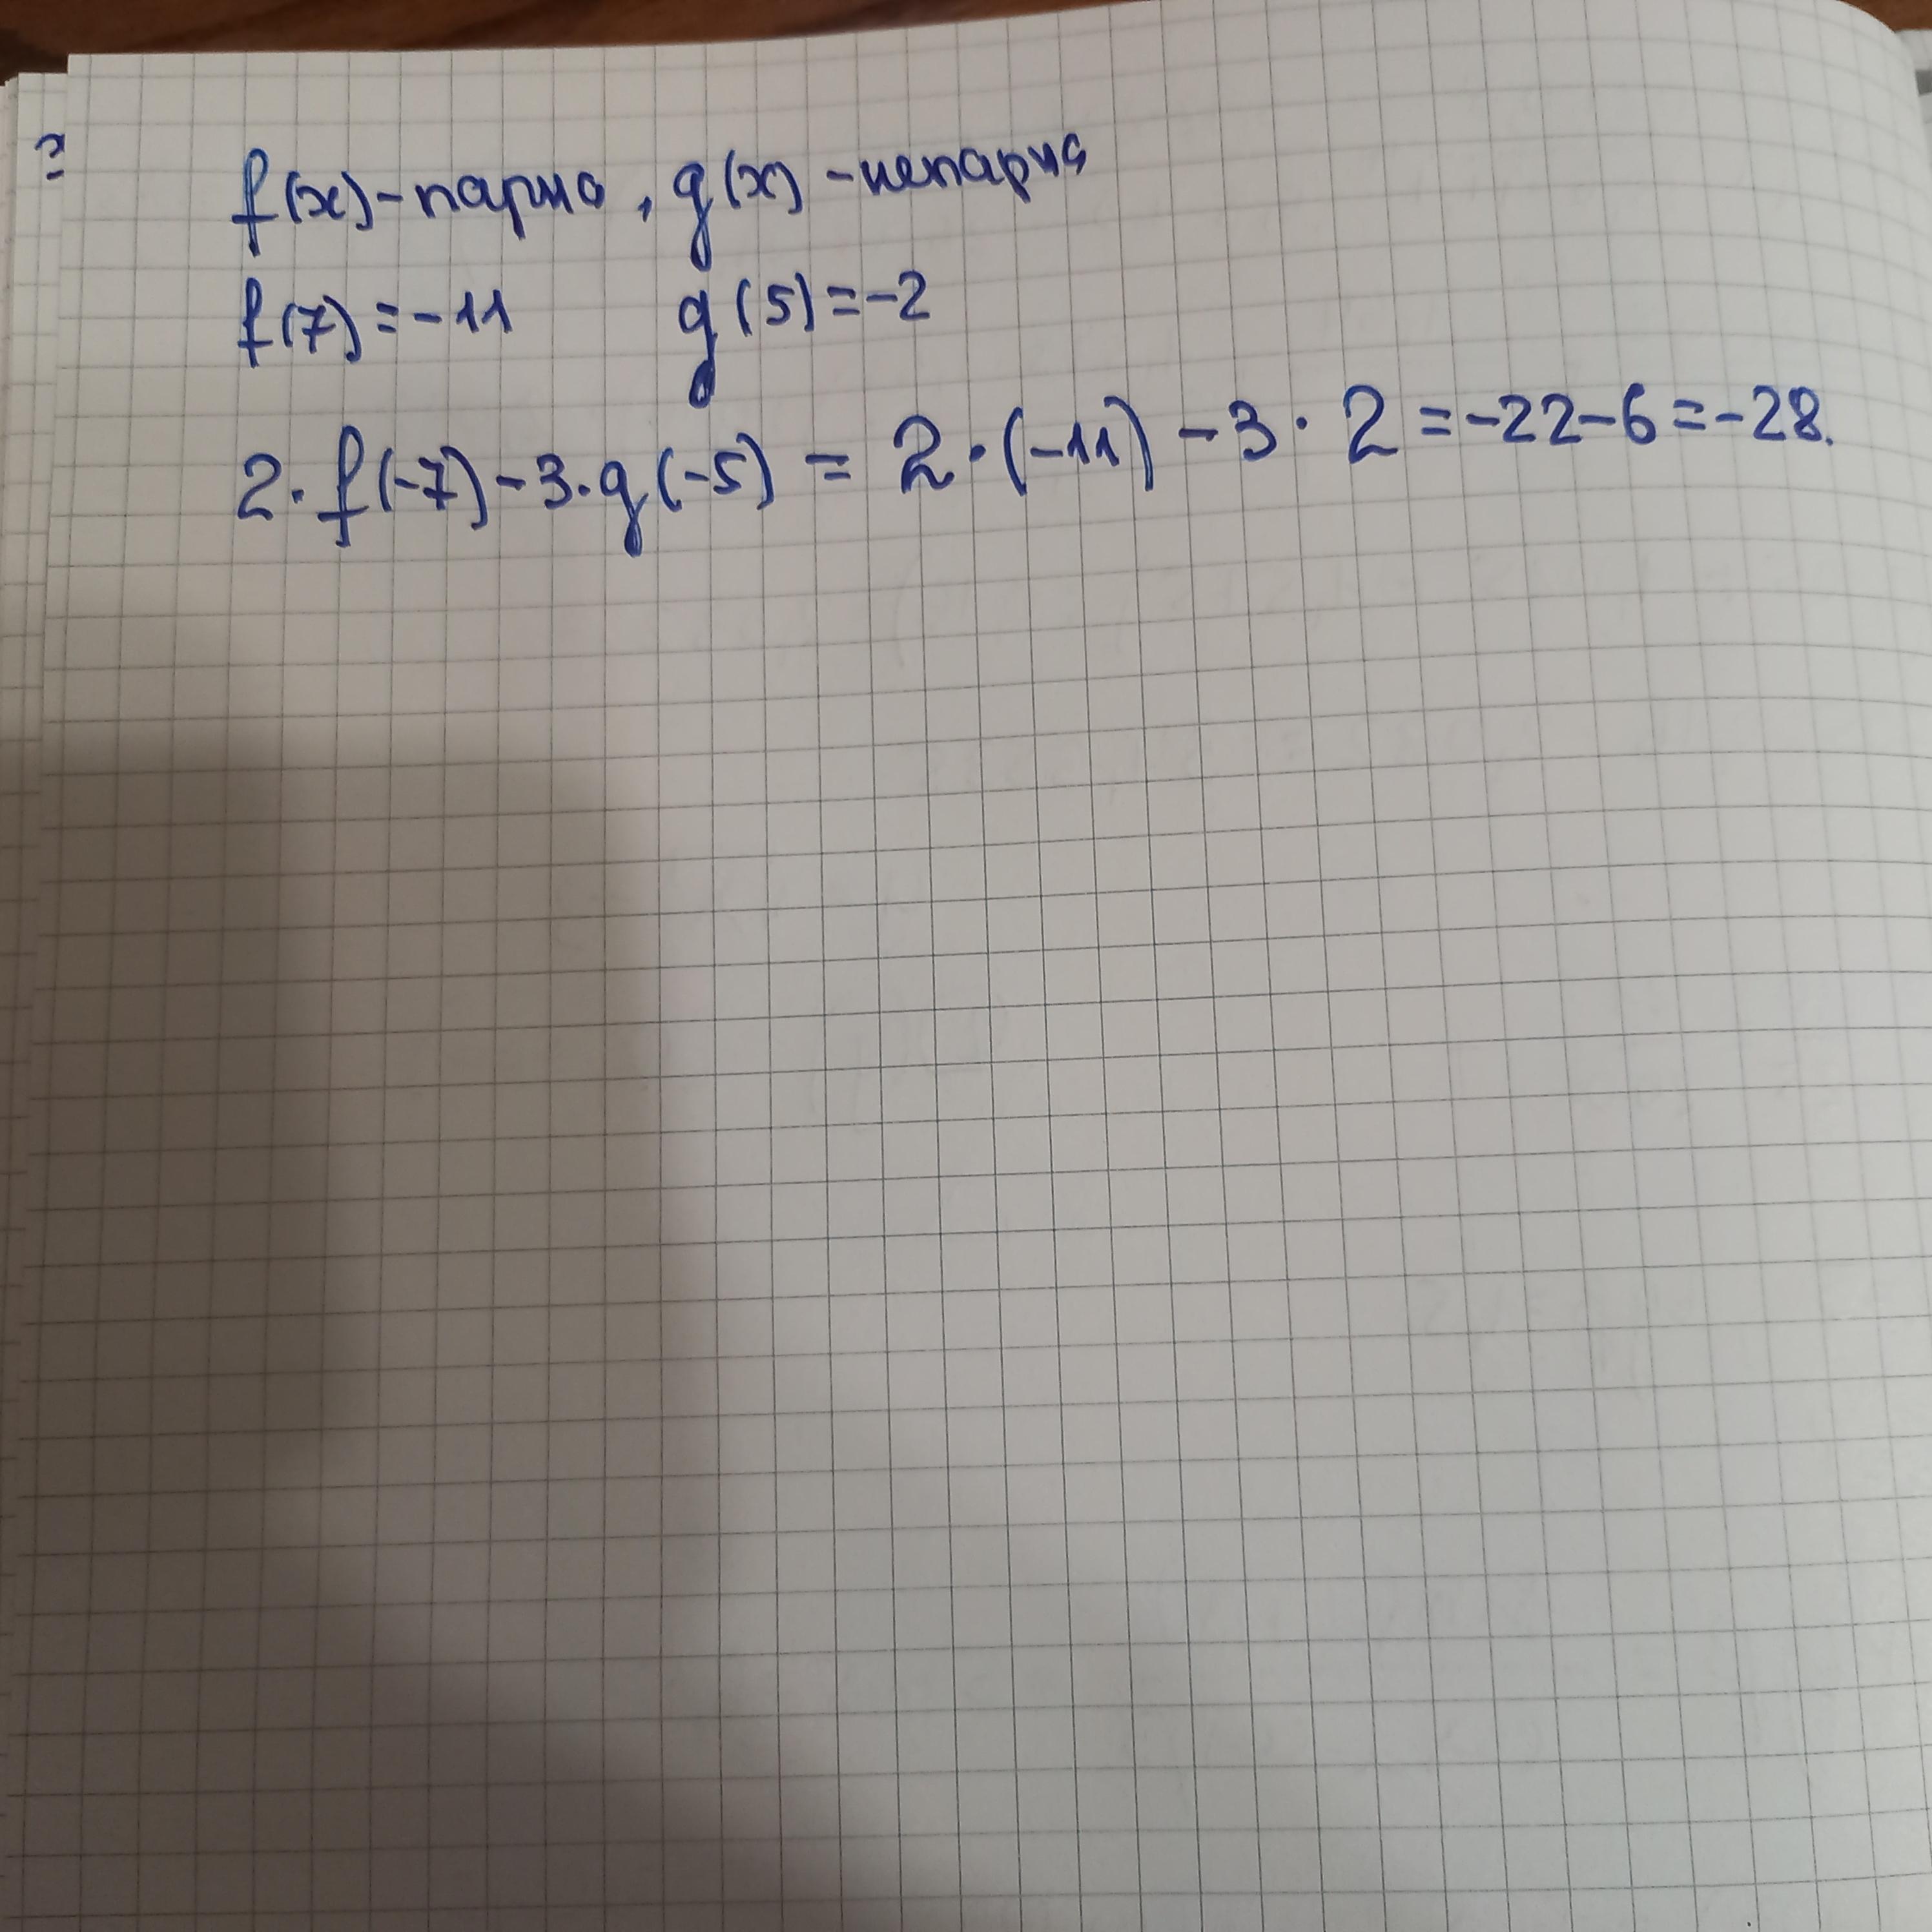 f(x)-парна, g(x)-непарна
f(7)=-11 g(5)=-2
2·f(-7)-3·g(-5) = 2·(-11)-3·2=-22-6=-28.